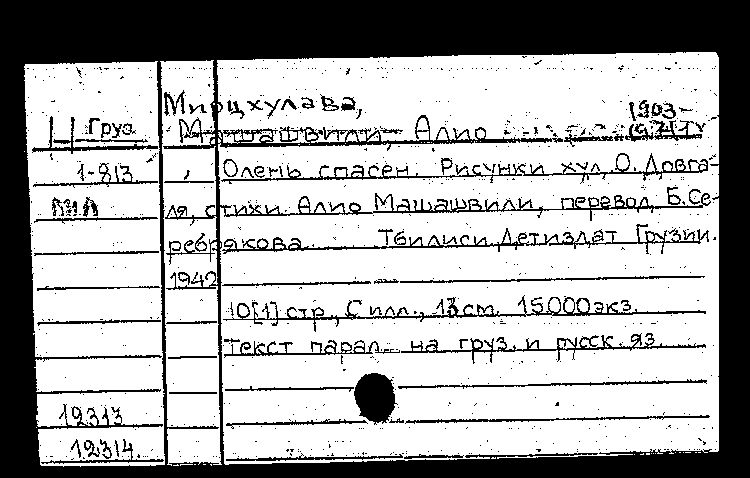 Мирцхулава,
Груз. Машашвили, Алио 1903-
1-813. Олень спасен. Рисунки худ. О. Довга-
ля, стихи Алио Машашвили, перевод Б. Се-
ребрякова Тбилиси, Детиздат Грузии.
1942
10[1] стр., С илл., 13 см. 15000 экз.
Текст парал. на груз. и русск. яз.
12313
12314.